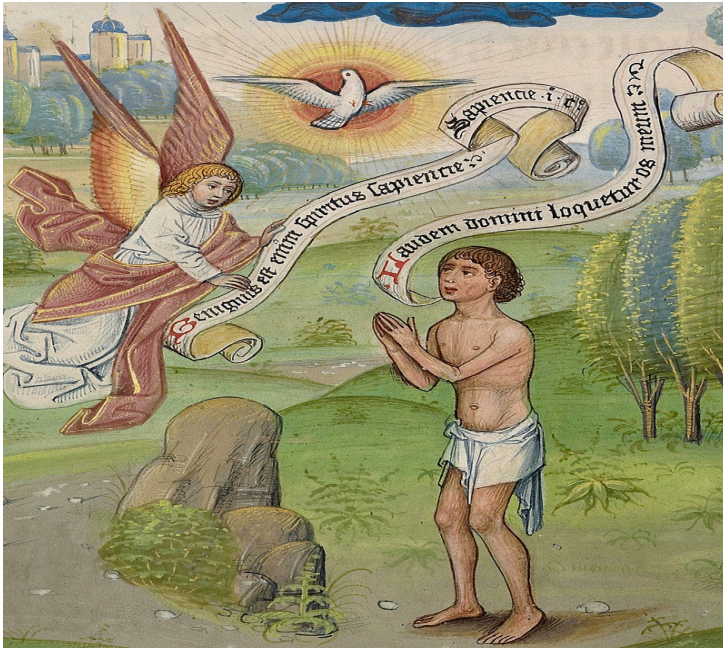 Benignus est enim spiritus sapientie
Sapientie .i. c°
Laudem domini loquetur os meum